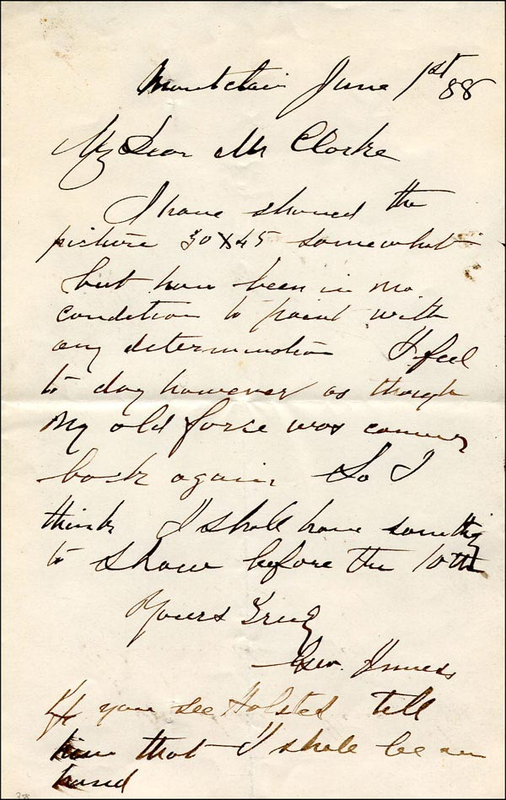 Montclair June 1st 88
My Dear Mr Clarke
I have showed the
picture 30 X 45 somewhat
but have been in no
condition to paint with
any determination I feel
to day however as though
my old force was coming
back again. So I
think I shall have something
to show before the 10th
Yours Truly
Geo. Inness
If you see Halsted tell
him that I shall be on
hand